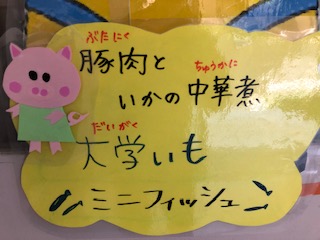 ぶたにく
豚肉と
ちゅうかに
いかの中華煮
だいがく
大学いも
ミニフィッシュ